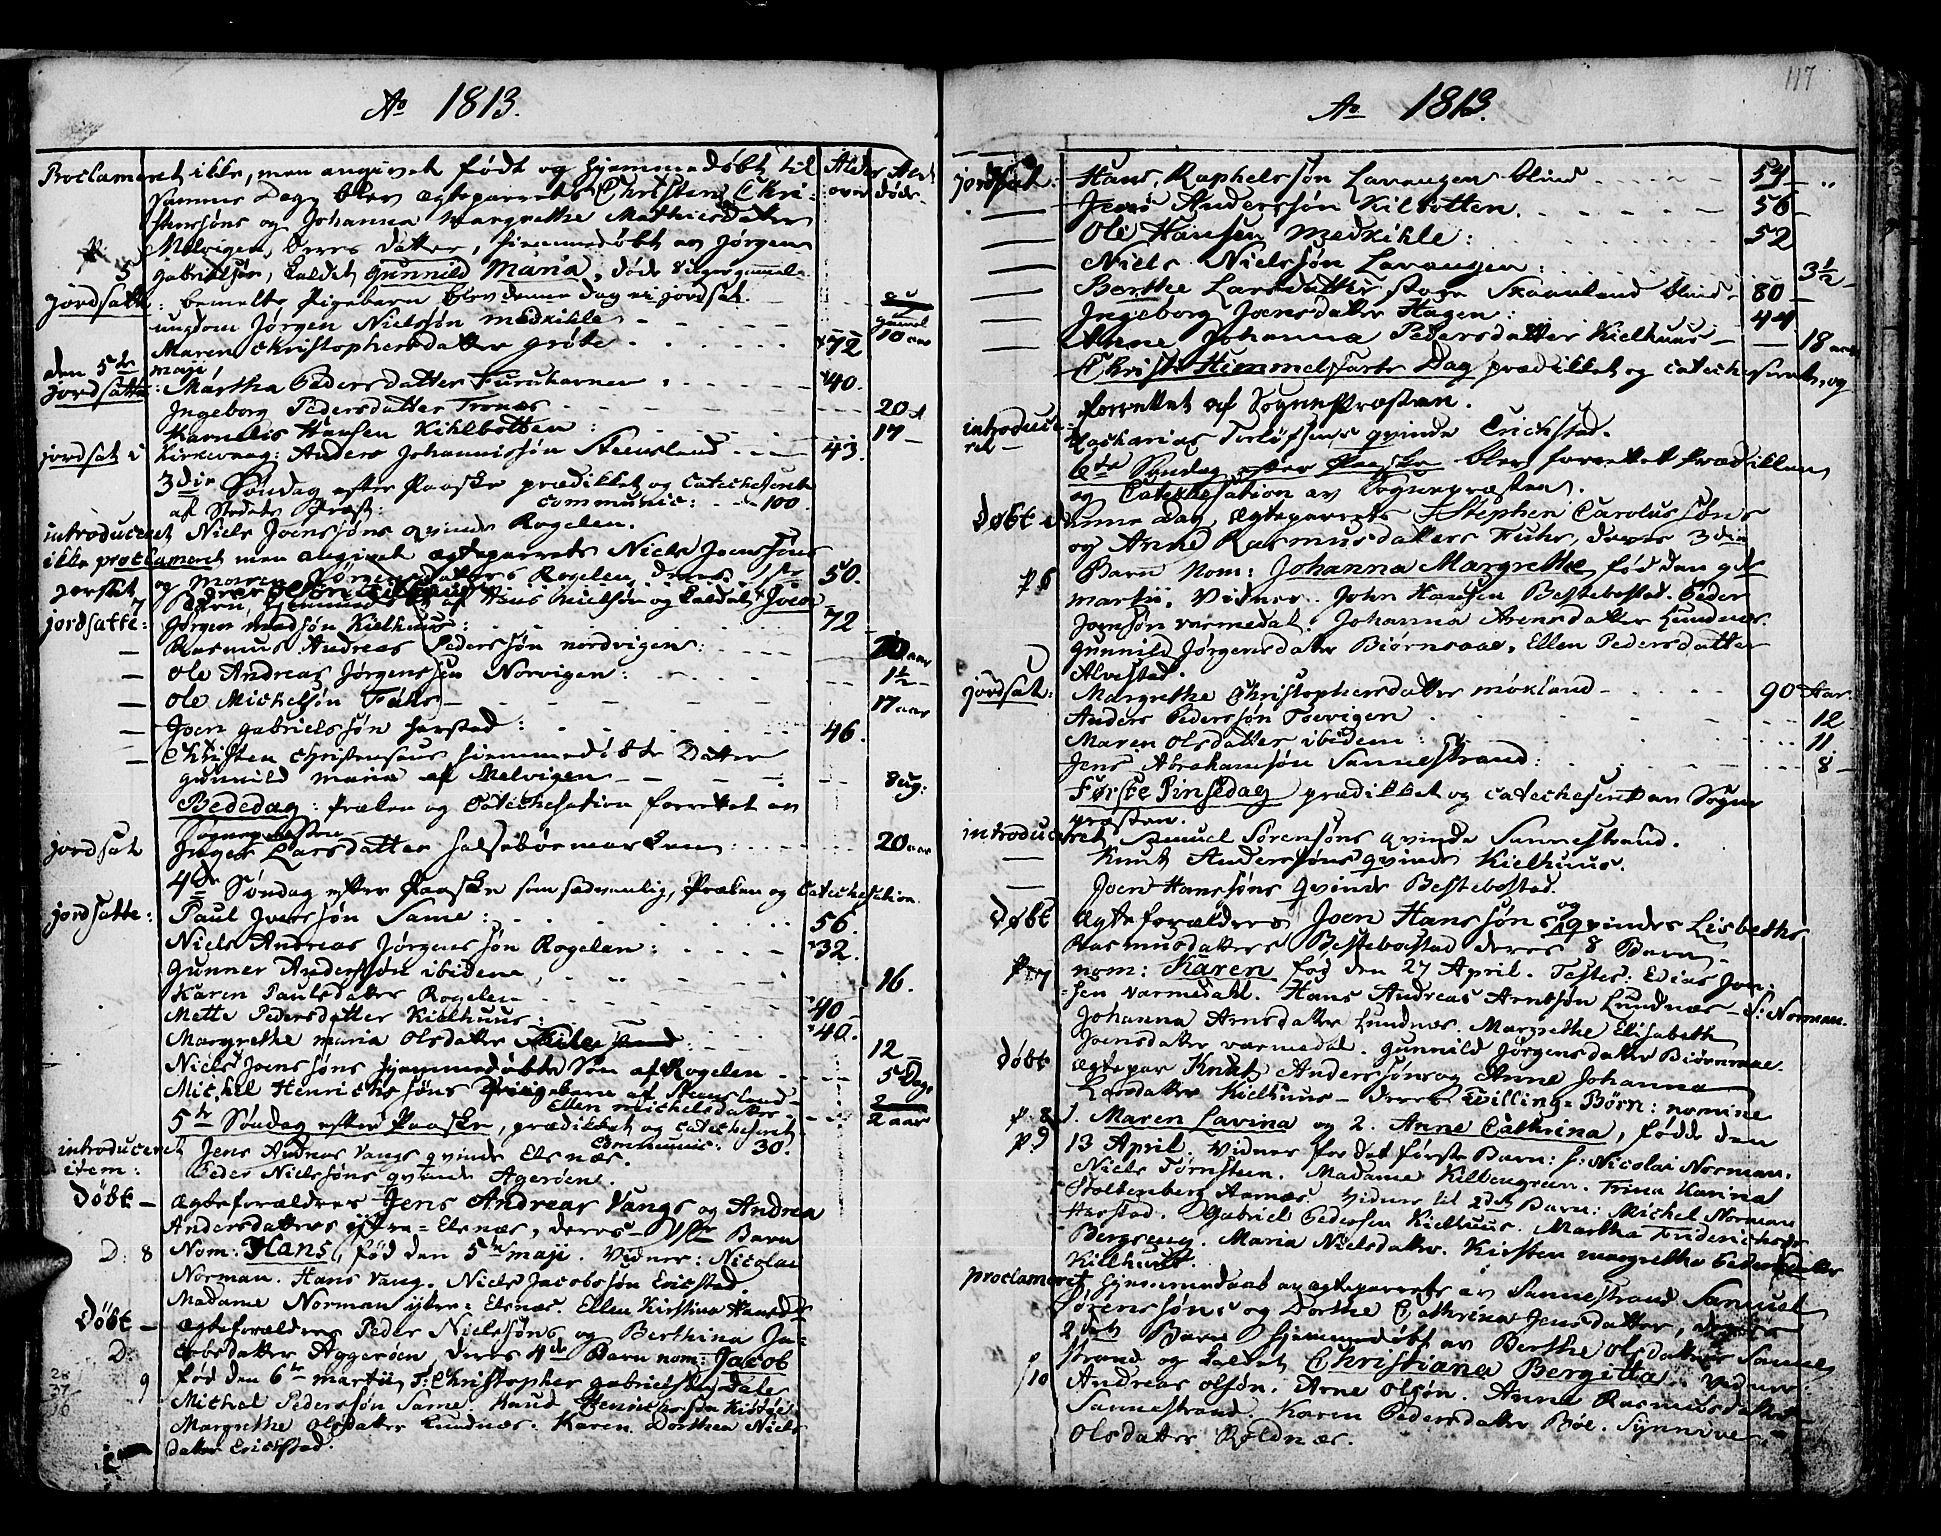 Ao 1813.
Proclameret ikke, men angivet født og hjemmedøbt til
Alder
over
døde
samme Dag blev ægteparrets Christen Chri-
stensøns og Johanna Margrethe Mathisdatter
Melvigen, deres datter, hiemmedøbt av Jørgen
5
Gabrielsøn, kaldet Gunnild Maria, døde 8 uger gammel
jordsatte: bemelte Pigebarn blev denne dag ei jordsat.
ungdom Jørgen Nielssøn medkihle 10 aar
Maren Christophersdatter grøte 72
den 5te maji
jordsatte: Martha Pedersdatter Furuhavnen 40.
Ingeborg Pedersdatter Tronæs 20
Karnelis Hansen Kihlbotten: 17
jordsat i Kirkevaag: Anders Johannissøn Steensland 43.
3die Søndag efter Paaske prædikket og catecheseret
af Stedets Præst: communic: 100.
introduceret Niels Joenssøns qvinde Rogelen.
ikke proclameret men angivet ægteparrets Niels Joenssøns
og Maren Sørensdatters Rogelen, deres 1ste 50.
7 Barn, hjemmedøbt af Hans Nielsøn og kaldet Joen
jordsatte: Jørgen Madsøn Kielhuus: 72
— Rasmus Andreas Pederssøn nordvigen: aar
— Ole Andreas Jørgenssen Norvigen: 1½
— Ole Michelsøn Fuhs 17 aar
— Joen Gabrielssøn Harstad: 46.
— Christen Christensens hiemmedøbte Datter
Gunnild Maria af Melvigen 8 ug:
Bededag: Præken og Catechesation forrettet av
Sognepresten
jordsat Inger Larsdatter Halsebøemarken: 20 aar
4de Søndag efter Paaske som sædvanlig, Præken og Catechesation.
jordsatte: Paul Iverssøn Same: 56.
Niels Andreas Jørgenssøn Rogelen: 32.
Gunner Anderssøn ibidem 16.
Karen Paulsdatter Rogelen
Mette Pedersdatter Kielhuus: 40
Margrethe Maria Olsdatter 40.
12
Niels Joenssøns hjemmedøbte Søn af Rogelen 5 Dage
Michel Henrichssøns Pigebarn af Steensland
Ellen Michelsdatter 2 aar
5te Søndag efter Paaske, prædikket og catecheseret
communic: 30.
introduceret Jens Andreas Vangs qvinde Elsnæs.
idem: Peder Nielssøns qvinde Agerøen.
Døbt — Ægteforældrer Jens Andreas Vangs og Andrea
Andersdatters ijtre=Elsnæs, deres 1ste Barn
D: 8 Nom: Hans, fød den 5te maji. Vidner: Nicolai
Norman. Hans Vang. Niels Jacobssøn Ericstad.
Madame Norman ijtre=Elsnæs. Ellen Kirstina
Døbt — ægteforældres Peder Nielssøns og Berthina Ja-
D: cobsdatter Aggerøen deres 4de Barn nom: Jacob
9 fød den 6te martii, T: Christopher Gabrielsen Dale
Michel Pederssøn Same. Knud
Margrethe Olsdatter Lundnæs. Karen Dorthea Niels-
datter Erichstad.
117
Ao 1813.
jordsat: Hans Raphelssøn Lavangen blind 54
— Jens Anderssøn Kilbotten. 56
— Ole Hansen Medkihle: 52
— Niels Nielssøn Lavangen: 3½
— Berthe Larsdatter store Skaanland blind 80
— Ingeborg Joensdatter Hagen: 44
— Anne Johanna Pedersdatter Kielhuus 18 aar
Christi Himmelfarts Dag prædikket og catecheseret, og
forrettet af SognePræsten.
introduceret — Zacharias Torlofsens qvinde Erickstad.
6te Søndag efter Paaske blev forrettet Prædikken
og Catechesation av Sognepræsten.
Døbt denne Dag ægteparrets Stephen Carolussøns
og Anne Rasmusdatters Fuhs, deres 3die
p 6 Barn Nom: Johanna Margrethe fød den 9de
martii. Vidner. John Hansen Bestebostad. Peder
Joensøn varmedal. Johanna Arensdatter Lundnæs.
Gunnild Jørgensdatter Biørnaae. Ellen Pedersdatter
Alvestad.
jordsat: Margrethe Christophersdatter Møkland 90 aar.
Anders Pederssøn Toevigen 12
Maren Olsdatter ibidem: 11
Jens Abrahamsøn Sannestrand: 8
Første Pinsedag prædikket og catecheseret av Sogne-
præsten.
introduceret Samuel Sørensøns qvinde Sannestrand.
— Knut Anderssøns qvinde Kielhuus.
— Joen Hanssøns Qvinde Bestebostad.
Døbt Ægteforældres Joen Hanssøns og qvindes Lisbeths
Rasmusdatters Bestebostad deres 8 Barn
p 7 nom: Karen fød den 27 April. Testes: Edias Jon-
sen Varmedahl. Hans Andreas Arntsøn Lundnæs. S: Norman.
Johanna Arnsdatter Lundnæs. Margrethe Elisabeth
Joensdatter varmedal. Gunnild Jørgensdatter Biørnaae.
Døbt ægtepar Knut Anderssøns og Anne Johanna
Larsdatter Kielhuus deres Tvilling=Børn: nomine
p. 8 1. Maren Lavina og 2. Anne Cathrina, fødde den
p. 9 13 April. Vidner for det første Barn: S: Nicolai Norman.
Niels Tørnsteen. Madame Killengreen. Trina Karina
Stoltenberg Aarnæs. Vidner til 2det Barn: Michel Norman
Harstad. Gabriel Pedersen Kielhuus. Martha Friderichsdr
Bergseng. Maria Nielsdatter. Kirsten Margrethe Pedersdatter
Kielhuus.
proclameret, hjemmedaab av ægteparrets av Sannestrand Samuel
Sørenssøns og Dorthe Cathrina Jensdatter, deres
2det Barn hjemmedøbt av Berthe Olsdatter Sanne-
strand og kaldet Christiana Bergitta. Vidner:
p 10 Andreas Olsøn. Arne Olsøn. Anna Rasmusdatter
Sannestrand. Karen Pedersdatter Bøe. Synnive
Olsdatter Roldnæs.